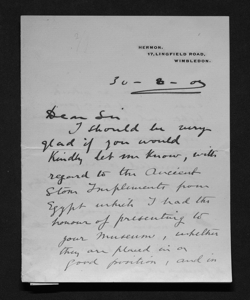 HERMON,
17, LINGFIELD ROAD,
WIMBLEDON.
30 - 8 - 09
Dear Sir
I should be very
glad if you would
Kindly let me know, with
regard to the Ancient
Stone Implements from
Egypt which I had the
honour of presenting to
your Museum, whether
they are placed in a
good position, and in